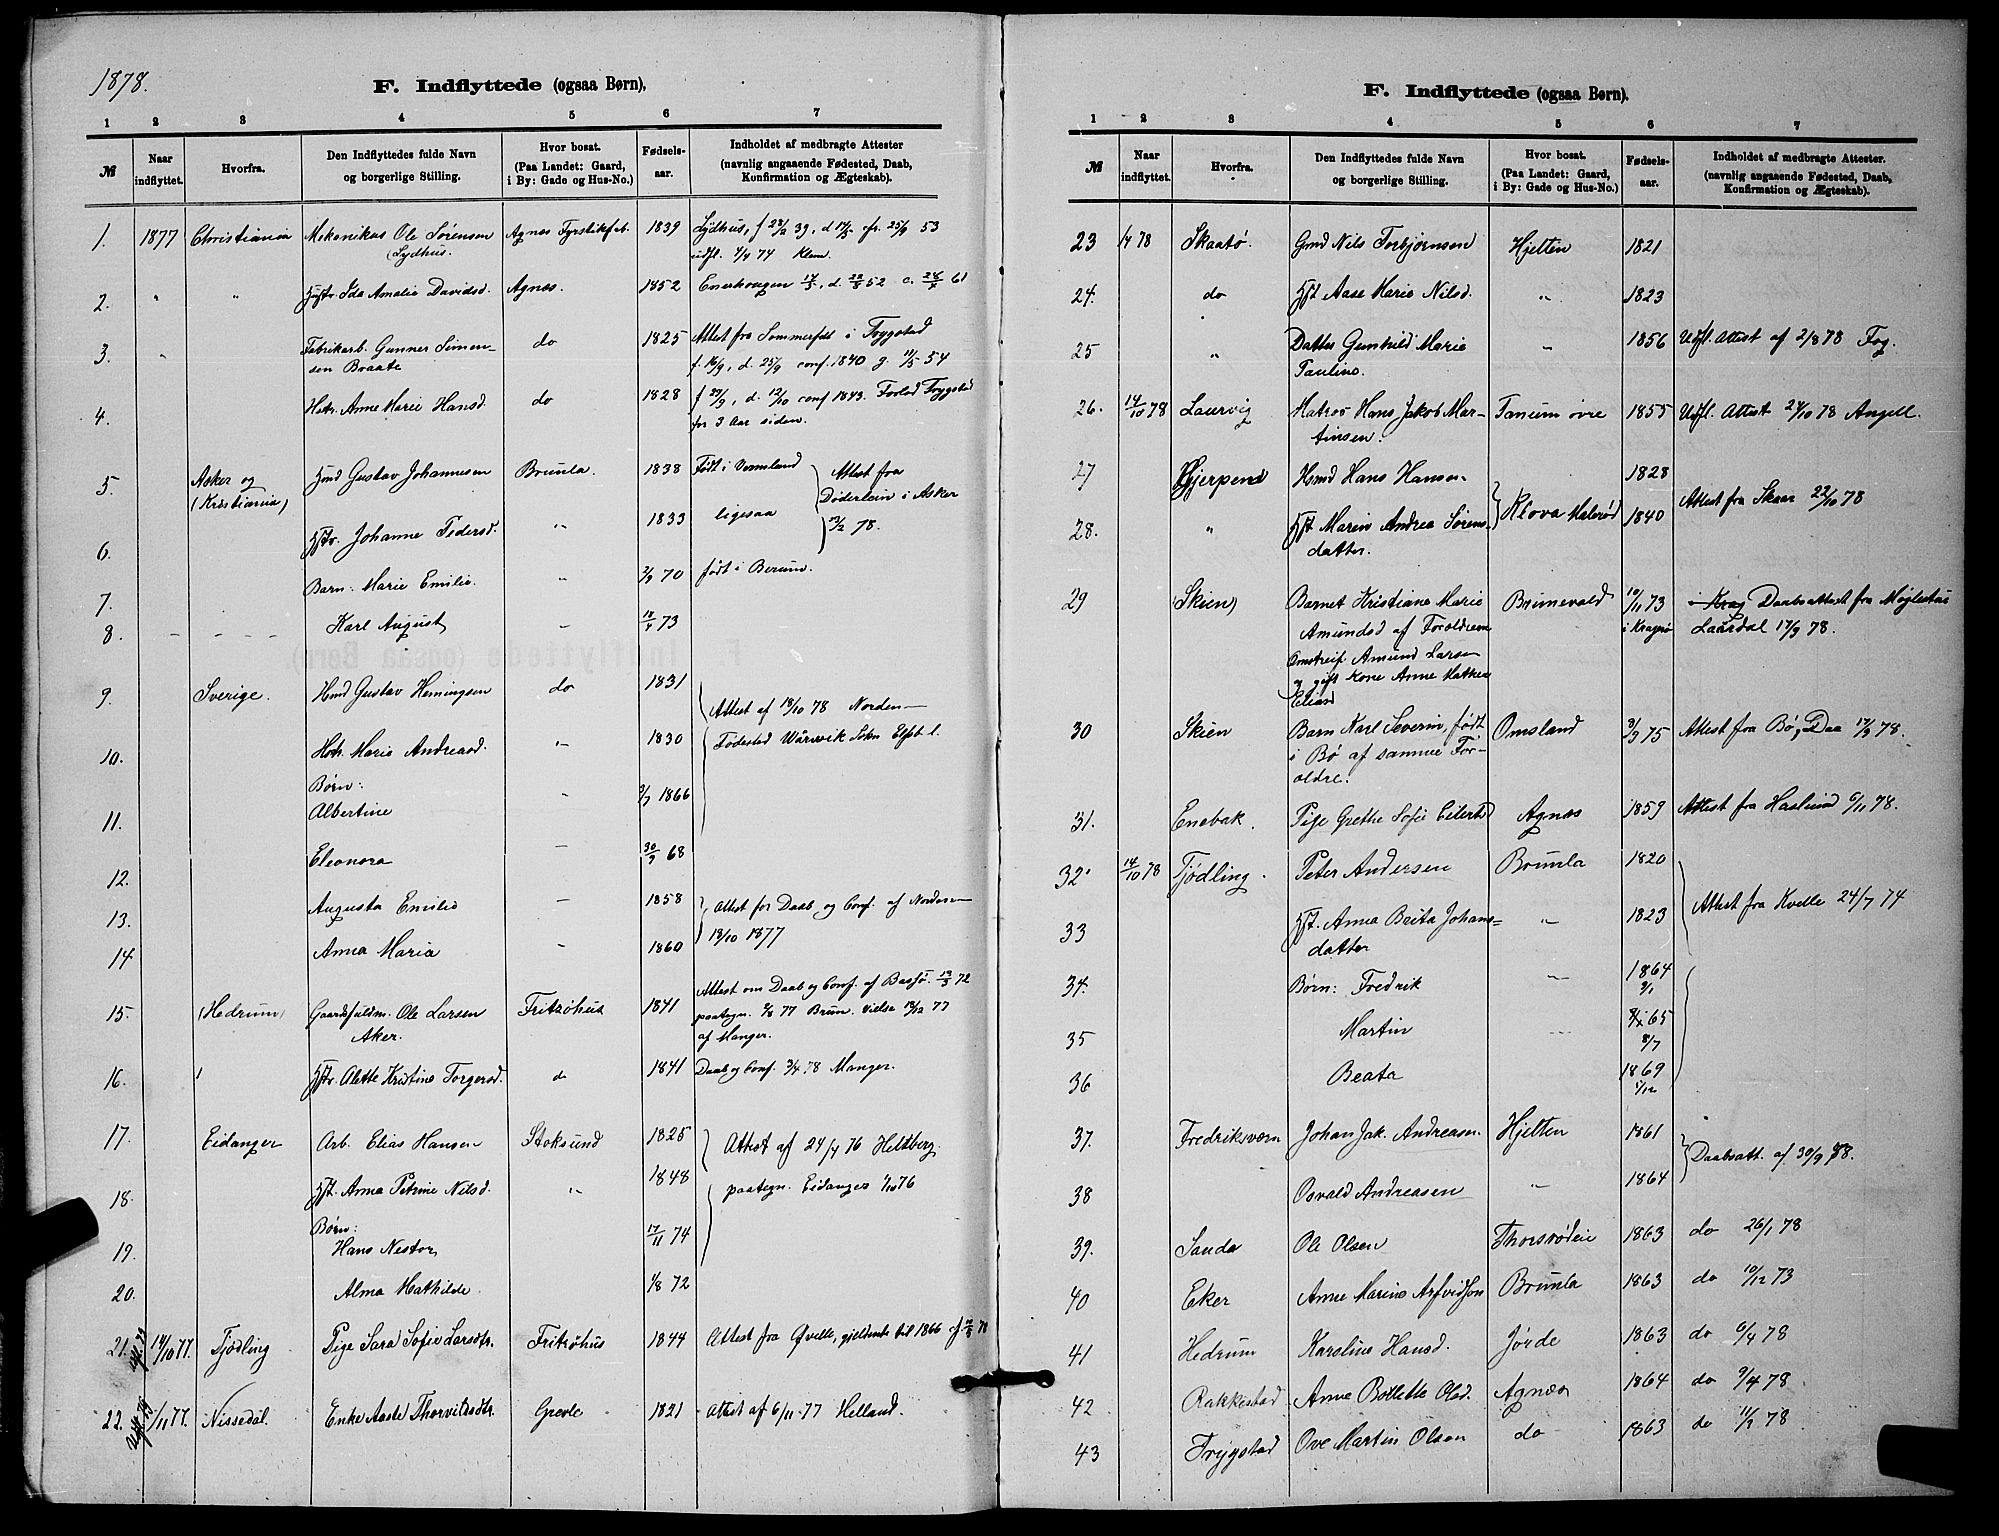 1878.
F. Indflyttede (ogsaa Børn),
1 2 3 4 5 6 7
№ Naar indflyttet. Hvorfra. Den Indflyttedes fulde Navn og borgerlige Stilling. Hvor bosat. (Paa Landet: Gaard, i By: Gade og Hus-No.) Fødsels-aar. Indholdet af medbragte Attester (navnlig angaaende Fødested, Daab, Konfirmation og Ægteskab).
1. 1877 Christiania Mekanikus Ole Sørensen Agnæs Fyrstikfab. 1839 Lydhus, f 28/2 39, d. cfr. 25/9 53
Lydhus. udfl. 4/4 74 Klem
2. " " Hustr. Ida Amalie Davidsd. Agnæs. 1852 Enerhougen 17/5, d. 22/8 52 c. 61
3. " Fabrikarb. Gunner Simen- do 1825 Attest fra Sommerfelt i Trygstad
sen Braate f. 16/9, d. 25/9 conf. 1840 g. 11/5 54
4. Hstr. Anne Marie Hansd. do 1828 f 29/9, d. 12/10 conf 1843. Forlod Trygstad
for 3 Aar siden.
5. Asker og Hmd Gustav Johannesen Brunla. 1838 Født i Vermland Attest fra
(Kristiania) Døderlein i Asker
6. Hstr. Johanne Pedersd. " 1833 ligesaa 13/2 78.
7. Barn: Marie Emilie. " 2/9 70 født i Berum.
8. Karl August " 73
9. Sverige. Hmd Gustav Hemingsen do 1831 Attest af 18/10 78 Norden-
10. Hstr. Maria Andreasd. " 1830 Fødested Wårvik Sokn Elfsb l.
Børn:
11. Albertine " 2/7 1866
12. Eleonora " 30/9 68
13. Augusta Emilie " 1858 Attest for Daab og Conf. af Norden-
14 Anna Maria " 1860 18/10 1877
15. (Hedrum) Gaardsfuldm. Ole Larsen Fritzøhus 1841 Attest om Daab og Conf. af 13/3 72
Aker. paategn. 9/8 77 Brun. Vielse 18/12 77
af Manger.
16. Hstr. Alette Kristine Torgersd. do 1841 Daab og Conf. 3/4 78 Manger.
17. Eidanger Arb. Elias Hansen Stoksund 1825 Attest af 24/4 76 Heltberg.
18. Hst. Anna Petrine Nilsd. " 1848 paategn. Eidanger 76
Børn:
19. Hans Nestor 17/11 74
20. Alma Mathilde 1/8 72
21. 14/10 77. Tjødling Pige Sara Sofie Larsdtr. Fritzøhus 1844 Attest fra Qvelle, gjeldende til 1866
22. /11 77. Nissedal Enke Aaste Thorvildsdtr. Grevle 1821 Attest af 6/11-77 Helland.
F. Indflyttede (ogsaa Børn).
1 2 3 4 5 6 7
№ Naar indflyttet. Hvorfra. Den Indflyttedes fulde Navn og borgerlige Stilling. Hvor bosat. (Paa Landet: Gaard, i By: Gade og Hus-No.) Fødsels-aar. Indholdet af medbragte Attester. (navnlig angaaende Fødested, Daab, Konfirmation og Ægteskab).
23 78 Skaatø. Gmd Nils Torbjørnsen Hjelten 1821
24. do Hst Aase Marie Nilsd. " 1823
25 " Datter Gunhild Marie " 1856 Udfl. Attest af 2/8 78
Pauline.
26. 14/10 78 Laurvig Matros Hans Jakob Mar- Tanum øvre 1855 Udfl. Attest 24/10 78 Angell.
tinsen.
27 Gjerpen Hsmd Hans Hansen 1828
28. " Hst. Maren Andrea Sørens- Klova Malerød 1840 Attest fra Skaar 22/10 78
datter.
29 (Skien) Barnet Kristiane Marie Brunevald 10/11 73 i Krag Daabsattest fra Møglestue
Amundsd af Forældrene i Kragerø Laardal 17/9 78.
Omstreif Amund Larsen
og gift Kone Anne Mathea
Eliasd
30 Skien Barn Karl Severin, født Omsland 3/9 75 Attest fra Bø, Daa 17/9 78.
i Bø af samme For-
ældre.
31. Enebak. Pige Grethe Sofie Eilertsd Agnæs 1859 Attest fra Haslund 6/11 78.
32. 14/10 78 Tjødling. Peter Andersen Brunla 1820
33 Hst. Anna Brita Johans- " 1823 Attest fra Kvelle 24/7 74
datter
34. Børn: Fredrik " 1864
9/1
35 Martin " 65
36 Beata 1869
37. Fredriksværn Johan Jak. Andreasen. Hjelten 1861 Daabsatt. af 30/9 78.
38 Osvald Andreasen " 1864
39. Sande Ole Olsen Thorsrødeie 1863 do 26/1 78
40 Eker Anne Marine Arfvidson Brunla 1863 do 10/12 73
41 Hedrum Karoline Hansd. Jørde 1863 do 6/4 78
42 Rakkestad Anne Bollette Olsd. Agnæs 1864 do 9/4 78
43 Trygstad Ove Martin Olsen do 1863 do 78